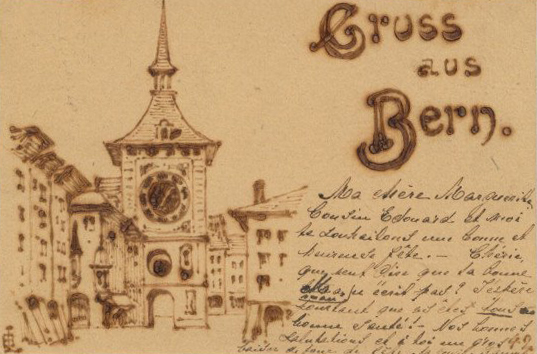 Gruss
aus
Bern.
Ma chère Marguerite
Cousin Edouard et moi
te souhaitons une bonne et
heureuse fête. — Chérie,
que veut dire que ta bonne
écrit pas? J'espère
pourtant que
bonne santé! — Nos bonnes
salutations et à toi un gros
baiser de